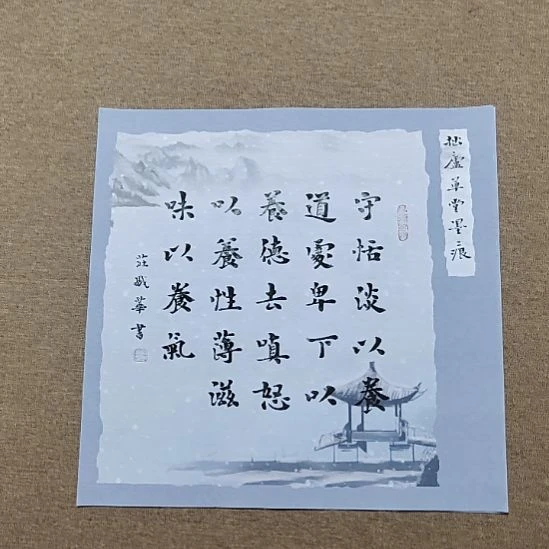 拙虛草堂墨痕
守恬淡以養
道處卑下以
養德去嗔怒
以養性薄滋
味以養氣
莊華書